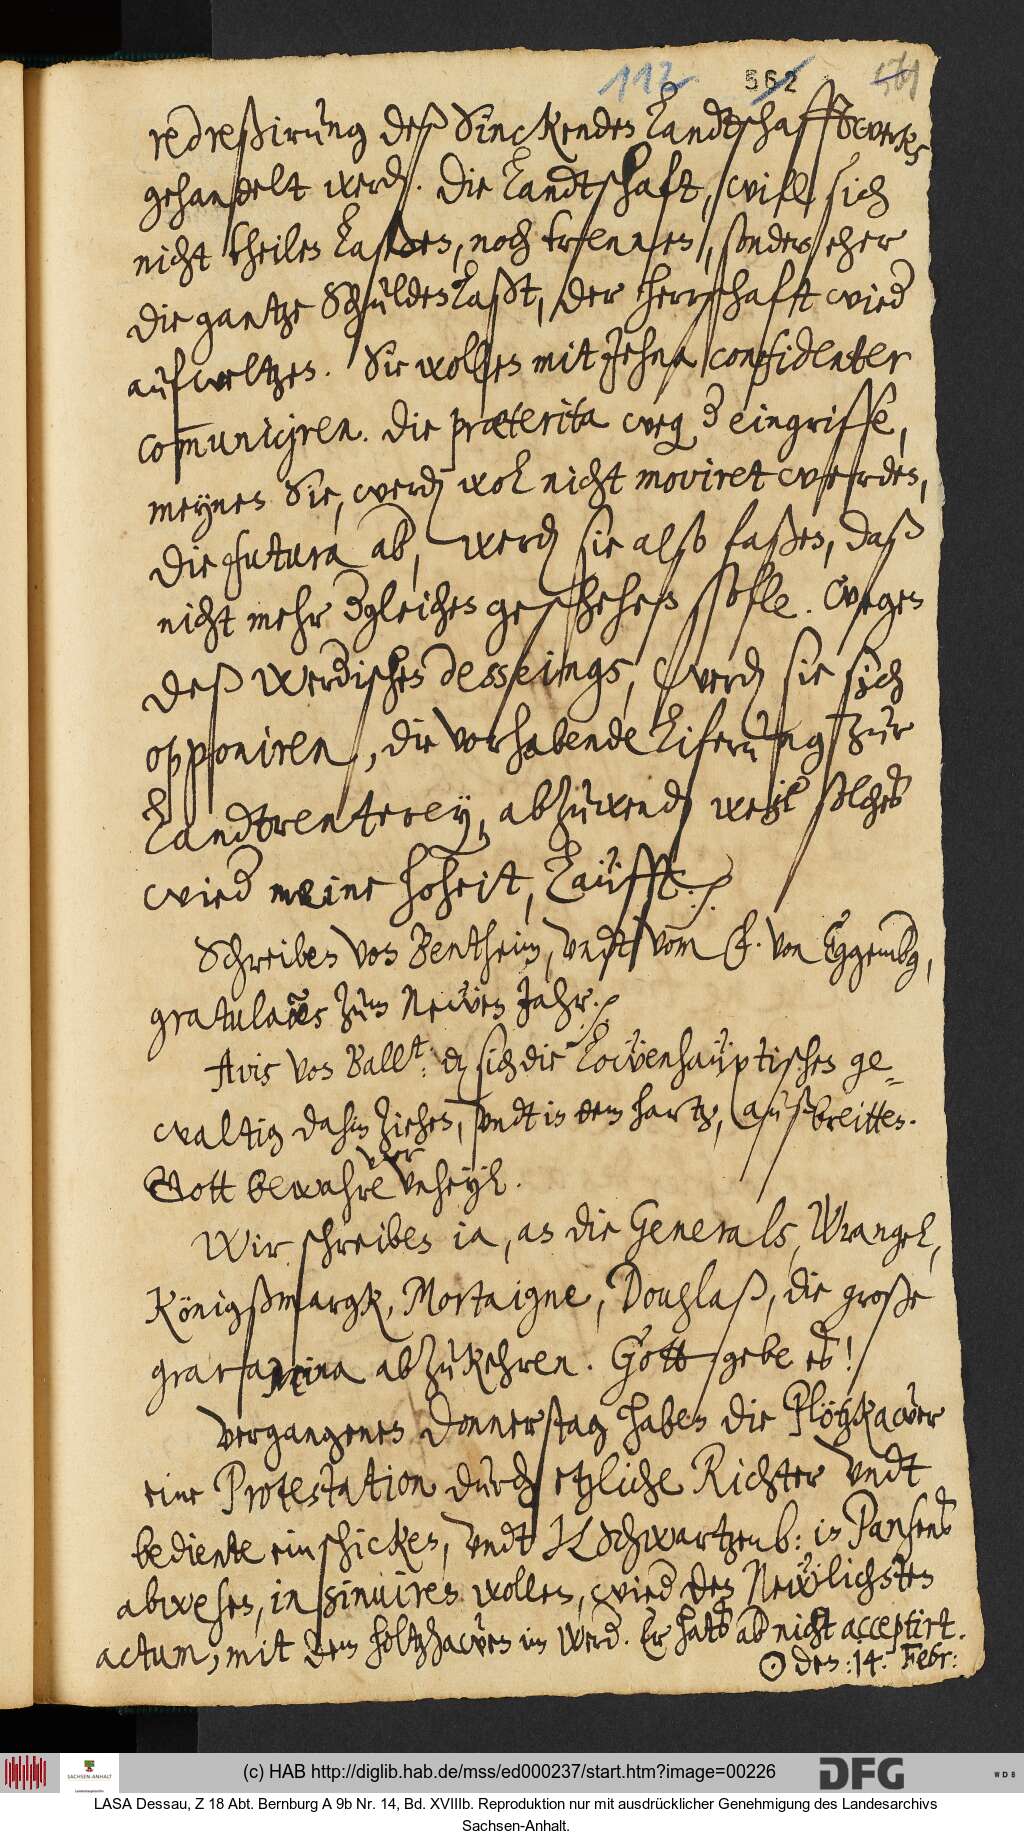 112 562 561
redreßirung deß Sinckenden Landtschafftswercks
gehandelt werden. Die Landtschaft, will sich
nicht theilen laßen, noch trennen, sondern eher
die gantze Schulden Laßt, der herrschafft wied
aufweltzen. Sie wollen mit Jehna confidenter
com̅uniciren. Die praeterita weg d eingriffe,
meynen Sie, werden wol nicht moviret werden,
die futura ab, werden sie also faßen, daß
nicht mehr dgleichen geschehen solle. Wegen
deß Werdischen desseings, werden sie sich
opponiren, die vorhabende Liferung zur
Landtrenterey, abzuwenden weil solches
wied meine hoheit, Laüfft.
Schreiben von Bentheim, undt vom F. von Eggembg,
gratulaões zum Neẅen Jahr.
Avis von Ballst: dz sich die Löwenhaüptischen ge-
waltig dahin ziehen, undt in dem hartz, außbreitten.
Gott bewahre vor Unheyl.
Wir schreiben ia, an die Generals, Wrangel,
Königßmargk, Mortaigne, Douglaß, die große
gravamina abzukehren. Gott gebe es!
Vergangenen Donnerstag haben die Plötzkawer
eine Protestation durch etzliche Richter undt
bediente einschicken, undt H Schwartzenb: in Pansens
abwesen, insinuiren wollen, wied den Neẅlichsten
actum, mit dem holtzhawen im Werd. Er hats ab nicht acceptirt.
☉ den: 14. Febr:
(c) HAB http://diglib.hab.de/mss/ed000237/start.htm?image=00226
SACHSEN-ANHALT
DFG
WDB
LASA Dessau, Z 18 Abt. Bernburg A 9b Nr. 14, Bd. XVIIIb. Reproduktion nur mit ausdrücklicher Genehmigung des Landesarchivs
Sachsen-Anhalt.